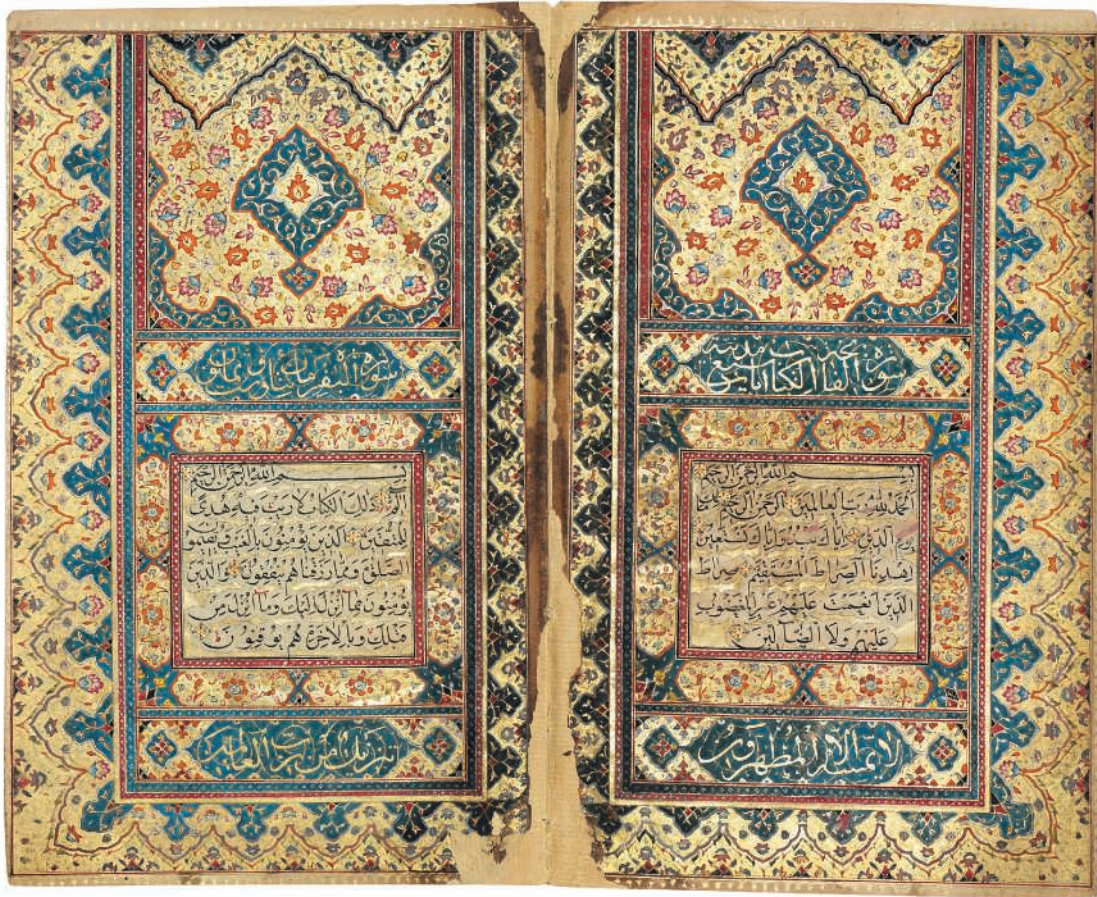 سورة الكتاب
بسم الله الرحمن الرحيم
الحمد لله رب العالمين الرحمن الرحيم ملك
يوم الدين اياك نعبد واياك نستعين
اهدنا الصراط المستقيم صراط
الذين انعمت عليهم غير المغضوب
عليهم ولا الضالين
لا يمسه الا المطهرون
سورة البقر مأتان وثمانون
بسم الله الرحمن الرحيم
الم ذلك الكتاب لا ريب فيه هدى
للمتقين الذين يؤمنون بالغيب ويقيمون
الصلوة ومما رزقناهم ينفقون والذين
يؤمنون بما انزل اليك وما انزل من
قبلك وبالاخرة هم يوقنون
تنزيل من رب العالمين